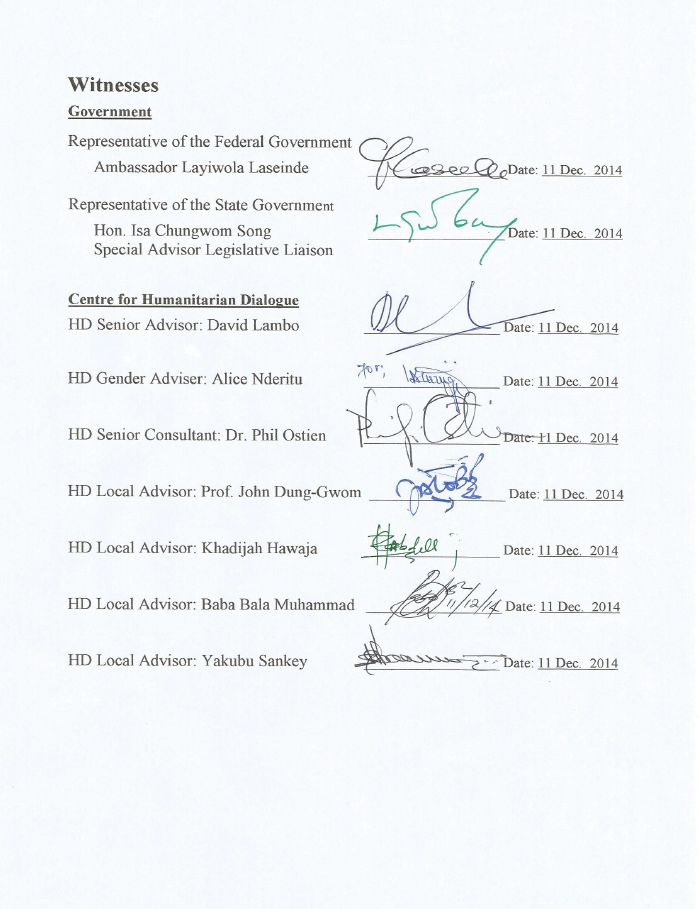 Witnesses
Government
Representative of the Federal Government
Ambassador Layiwola Laseinde Date: 11 Dec. 2014
Representative of the State Government
Hon. Isa Chungwom Song Date: 11 Dec. 2014
Special Advisor Legislative Liaison
Centre for Humanitarian Dialogue
HD Senior Advisor: David Lambo Date: 11 Dec. 2014
HD Gender Adviser: Alice Nderitu For; Date: 11 Dec. 2014
HD Senior Consultant: Dr. Phil Ostien Date: 11 Dec. 2014
HD Local Advisor: Prof. John Dung-Gwom Date: 11 Dec. 2014
HD Local Advisor: Khadijah Hawaja Date: 11 Dec. 2014
HD Local Advisor: Baba Bala Muhammad 11/12/14 Date: 11 Dec. 2014
HD Local Advisor: Yakubu Sankey Date: 11 Dec. 2014